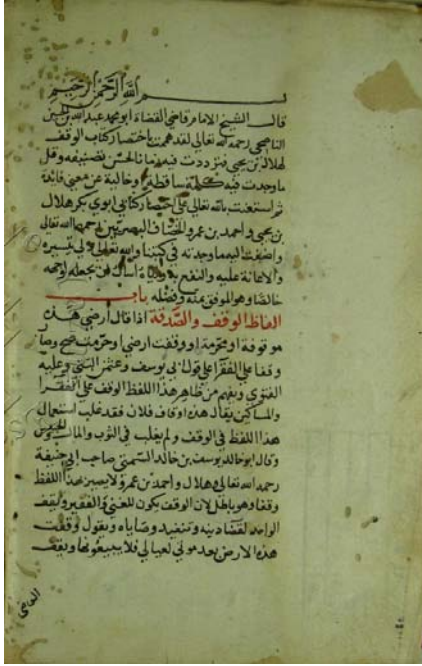 بسم الله الرحمن الرحيم
قال الشيخ الامام قاضي القضاة ابو محمد عبد الله بن الحسين
الناصحي رحمه الله تعالى لقد هممت باختصار كتاب الوقف
لهلال بن يحيى فترددت فيه زمانا لحسن تصنيفه وقل
ما وجدت فيه كلمة ساقطة او خالية عن معنى فائدة
ثم استعنت بالله تعالى على اختصار كتابي ابوي بكر هلال
بن يحيى واحمد بن عمرو الخصاف البصريين رحمهما الله تعالى
واضفت اليهما وجدته في كتبنا والله تعالى ولي تيسيره
والاعانة عليه والنفع به واياه أسأل ان يجعله لوجهه
خالصا وهو الموفق بمنه وفضله باب
الفاظ الوقف والصدقة اذا قال أرضي هذه
موقوفة او محرمة او وقفت ارضي او حرمت صح وصار
وقفا على الفقرا على قول ابي يوسف وعثمن البتي وعليه
الفتوى ويفهم من ظاهر هذا اللفظ الوقف على الفقرا
والمساكين يقال هذه اوقاف فلان فقد غلب استعمال
هذا اللفظ في الوقف ولم يغلب في الثوب والمال
وقال ابو خالد يوسف بن خالد السمتي صاحب ابي حنيفة
رحمه الله تعالى وهلال واحمد بن عمرو لا يصير بهذا اللفظ
وقفا وهو باطل لان الوقف يكون للغني والفقير ولبقف
الواحد لقضا دينه وتنفيذ وصاياه ويقول وقفت
هذه الارض بعد موتي لعيالي فلا يبيعونها ويقف